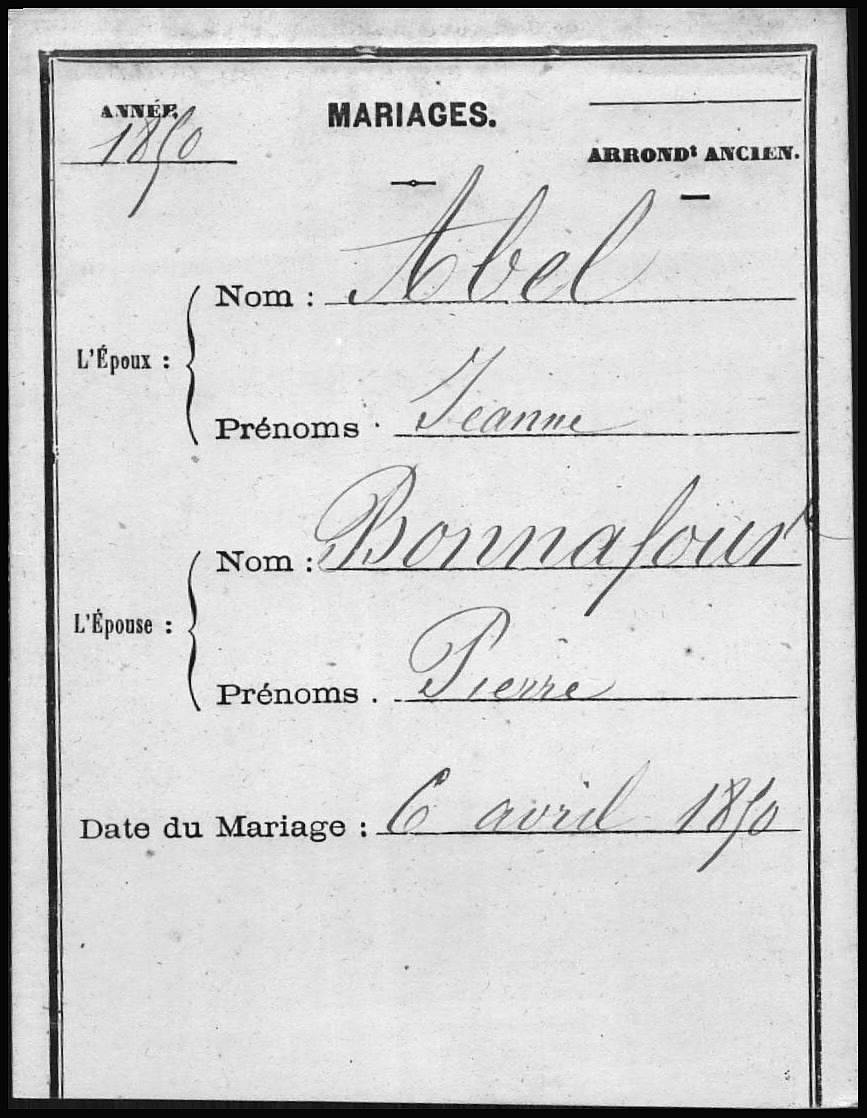 ANNÉE
1850
MARIAGES.
ARRONDt ANCIEN.
L'Époux :
Nom : Abel
Prénoms : Jeanne
L'Épouse :
Nom : Bonnafoux
Prénoms . Pierre
Date du Mariage : 6 avril 1850